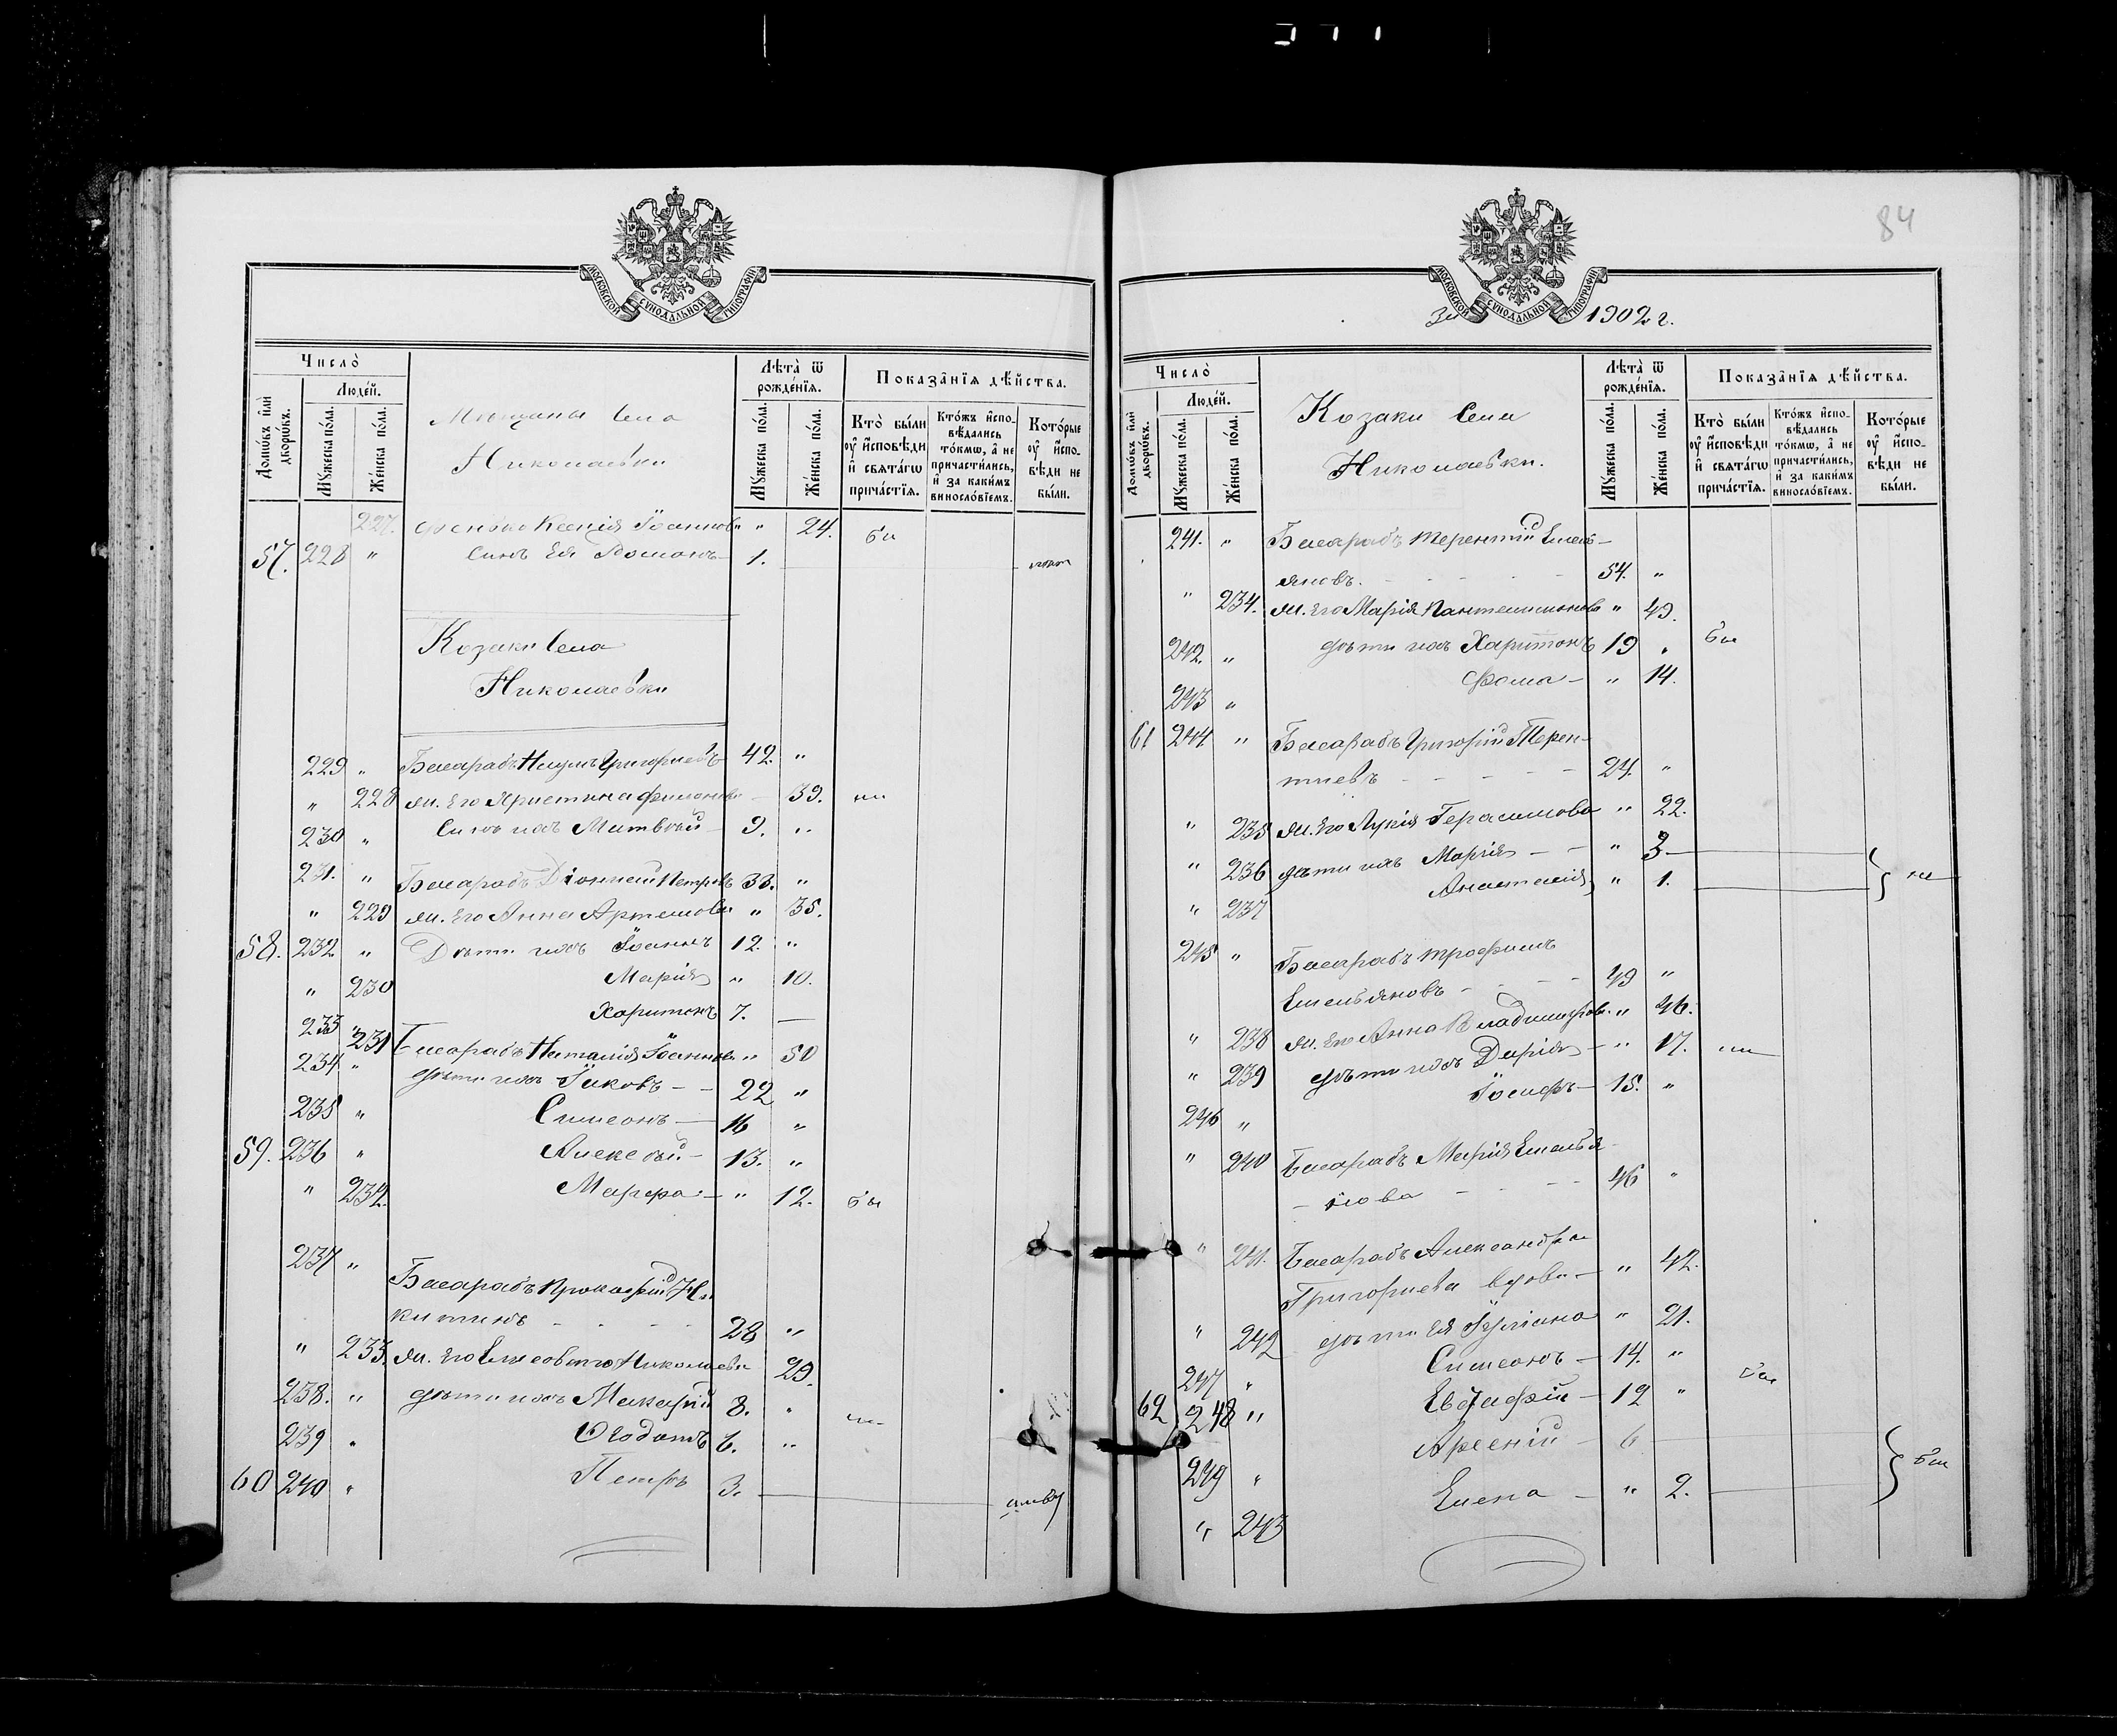 84
МОСКОВСКОЙ СУНОДАЛЬНОЙ ТИПОГРАФІИ
Число̀
Людей.
Домѡвъ или дворѡвъ.
Мꙋжеска пола.
Женска пола.
Мѣщаны села
Николаевки
Лѣта̀ ѿ рожденїѧ.
Мꙋжеска пола.
Женска пола.
Показанїѧ дѣйства.
Кто̀ были оу҆ исповѣди и свѧтагѡ причастїѧ.
Ктожъ испо-
вѣдались
токмѡ, а не
причастились,
и за какимъ
винословїемъ.
Которые оу҆ испо-
вѣди не были.
227. Ксенія Іоаннов „ 24. бы
57. 228 „ сынъ ея Романъ 1.
Козаки села
Николаевки
229 „ Басарабъ Наумъ Григорьевъ 42. „
„ 228 ж. его Христина Филонова 39.
230 „ Сынъ ихъ Матвѣй 9. „
231. „ Басарабъ Діонисій Петровъ 33. „
„ 229 ж. его Анна Артемова „ 35.
58. 232 „ Дѣти ихъ Іоаннъ 12. „
„ 230 Марія „ 10.
233 „ Харитонъ 7. —
231 Басарабъ Наталія Іоаннова „ 50
234 „ дѣти ихъ Іаковъ — 22 „
235 „ Симеонъ — 16 „
59. 236 „ Алексѣй — 13. „
„ 232. Марфа — „ 12. бы
237 „ Басарабъ Прокофій Ни
китинъ 28 „
„ 233. ж. его Елисавета Николаева 29.
238. „ дѣти ихъ Макарій 8. „
239 „ Ѳеодотъ 6. „
60 240 „ Петръ 3.
МОСКОВСКОЙ СУНОДАЛЬНОЙ ТИПОГРАФІИ
За 1902 г.
Число̀
Людей.
Домѡвъ или дворѡвъ.
Мꙋжеска пола.
Женска пола.
Козаки села
Николаевки.
Лѣта̀ ѿ рожденїѧ.
Мꙋжеска пола.
Женска пола.
Показанїѧ дѣйства.
Кто̀ были оу҆ исповѣди и свѧтагѡ причастїѧ.
Ктожъ испо-
вѣдались
токмѡ, а не
причастились,
и за какимъ
винословїемъ.
Которые оу҆ испо-
вѣди не были.
241. „ Басарабъ Терентій Емель-
яновъ. 54. „
„ 234. ж. его Марія Пантелимонов „ 49.
242. „ дѣти ихъ Харитонъ 19 „ бы
243 „ Фома — „ 14.
61 244 „ Басарабъ Григорій Терен-
тіевъ 24. „
„ 235 ж. его Лукія Герасимова „ 22.
„ 236 дѣти ихъ Марія — „ 3
„ 237 Анастасія „ 1.
245 „ Басарабъ Трофимъ
Емельяновъ 49 „
„ 238 ж. его Анна Владимиров. „ 46.
„ 239 дѣти ихъ Дарія — „ 17.
246 „ Іосифъ — 15. „
„ 240 Басарабъ Марія Емелья-
нова 46 „
„ 241. Басарабъ Александра
Григориева вдова — „ 42.
„ 242 дѣти ея Іуліана „ 21.
247 „ Симеонъ — 14. „
62 248 „ Евграфій — 12 „
249 „ Арсеній — 6
„ 243 Елена — „ 2.